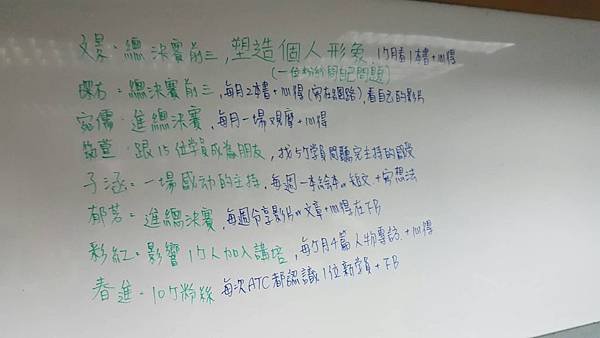 文景：總決賽前三，塑造個人形象 1個月看1本書+心得
(一位粉絲問自己問題)
：總決賽前三，每月2本書+心得(寫在網路)，看自己的影片
宛儒：進總決賽，每月一場觀摩+心得
筑萱：跟15位學員成為朋友，找5个學員問聽完主持的感受
子涵：一場感动的主持，每週一本繪本or短文+寫想法
郁茗：進總決賽，每週分享影片or文章+心得在FB
彩紅：影響1个人加入講培，每个月4篇人物專訪+心得
春進：10个粉絲 每次ATC都認識1位新學員+FB